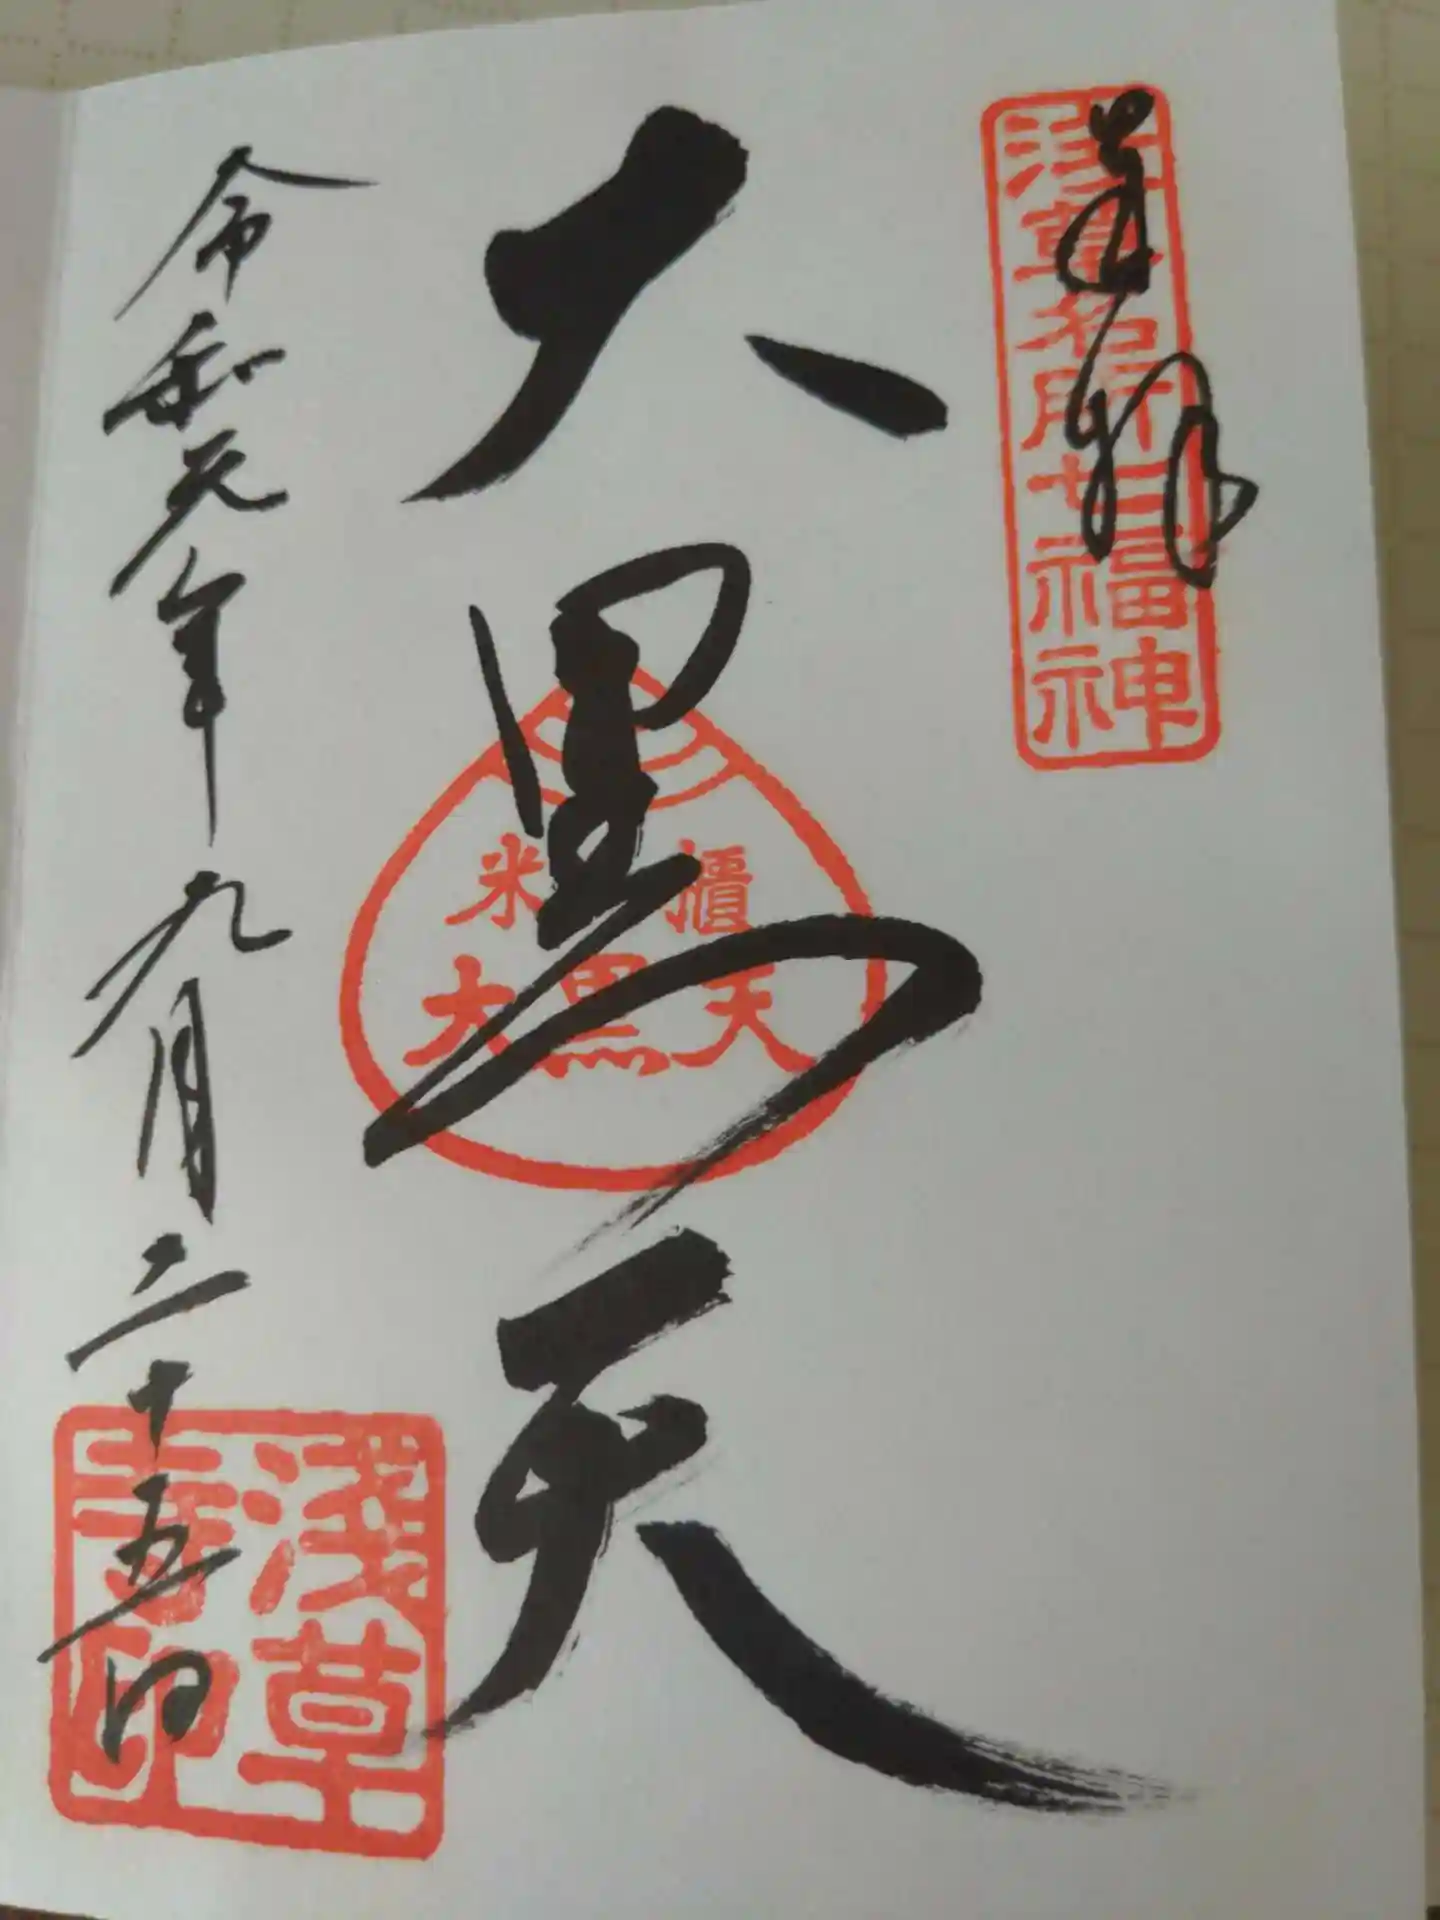 奉拝
浅草名所七福神
大黒天
米櫃
大黒天
令和元年九月二十五日
浅草寺印